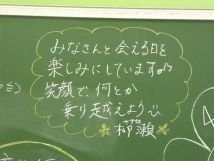 みなさんと会える日を
楽しみにしています♪
笑顔で、何とか
乗り越えよう
柳瀬